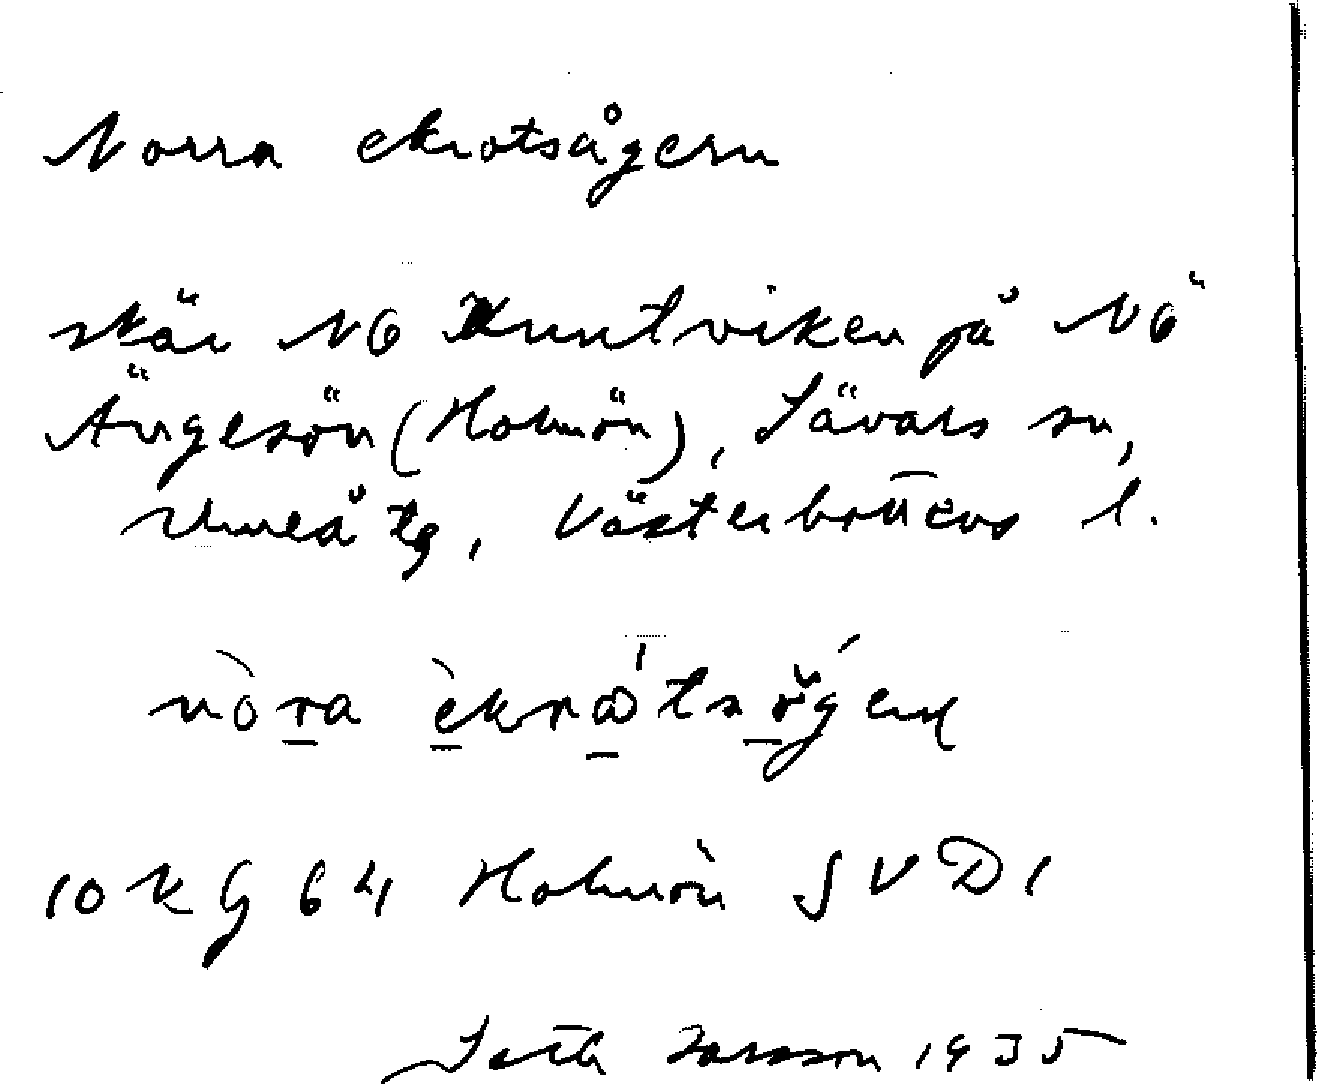 Norra ekrotsågern
skär NO Knutviken på NÖ
Ängesön (Holmön), Sävars sn,
Umeå tg, Västerbottens l.
10 K G 64 Holmön SVD1
Seth Larsson 1935